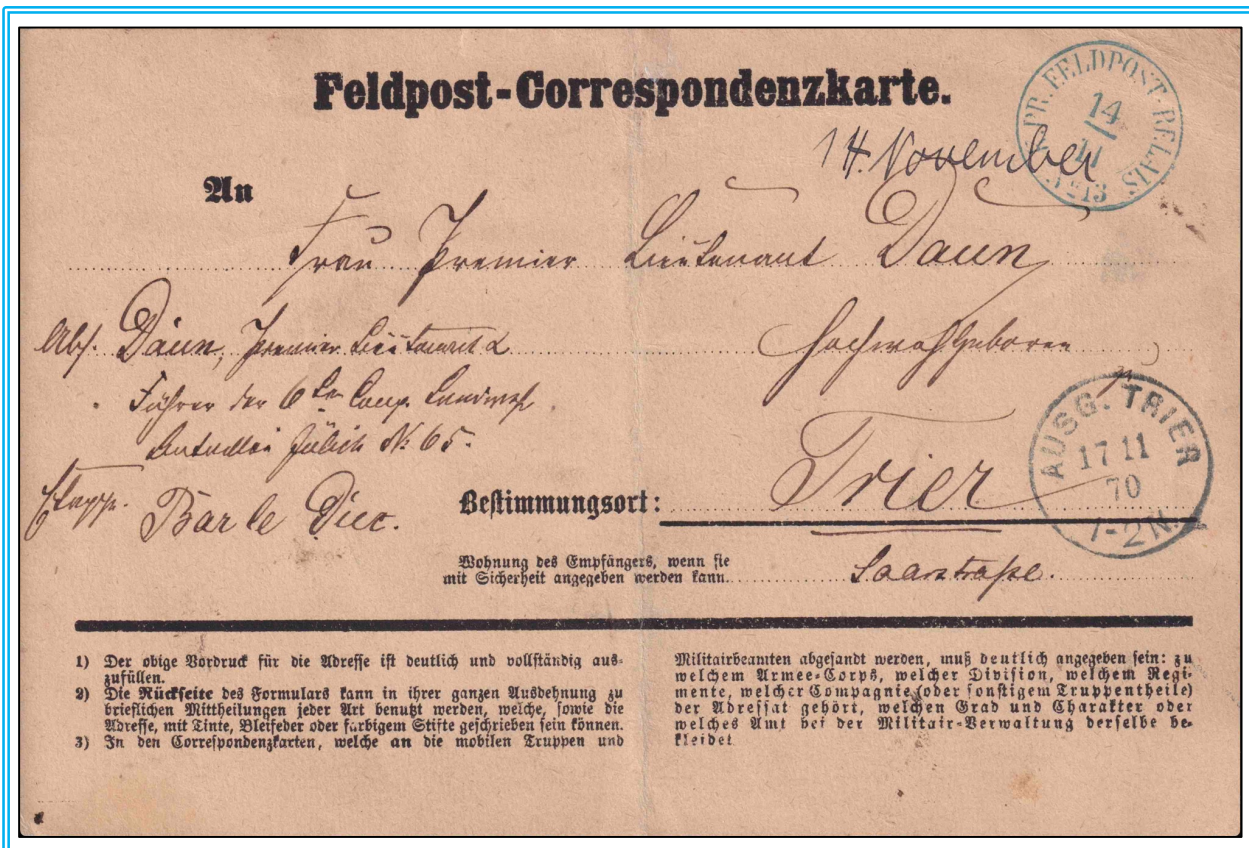 Feldpost-Correspondenzkarte.
K. PR. FELDPOST-RELAIS
14/11
No 13
14. November
An
Frau Premier Lieutenant Daun
Hochwohlgeboren
Abs. Daun, Premier Lieutenant &
Führer der 6ten Comp. Landwehr
Bataillon Jülich No 65.
Etappe. Bar le Duc.
Bestimmungsort: Trier
AUSG. TRIER
17 11
70
1-2 N.
Wohnung des Empfängers, wenn sie
mit Sicherheit angegeben werden kann. Saarstraße.
1) Der obige Vordruck für die Adresse ist deutlich und vollständig aus-
zufüllen.
2) Die Rückseite des Formulars kann in ihrer ganzen Ausdehnung zu
brieflichen Mittheilungen jeder Art benutzt werden, welche, sowie die
Adresse, mit Tinte, Bleifeder oder farbigem Stifte geschrieben sein können.
3) In den Correspondenzkarten, welche an die mobilen Truppen und
Militairbeamten abgesandt werden, muß deutlich angegeben sein: zu
welchem Armee-Corps, welcher Division, welchem Regi-
mente, welcher Compagnie (oder sonstigem Truppentheile)
der Adressat gehört, welchen Grad und Charakter oder
welches Amt bei der Militair-Verwaltung derselbe be-
kleidet